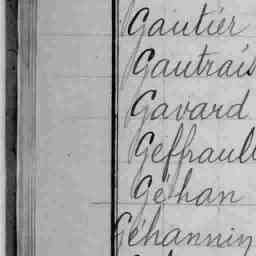 Gautier
Gautrais
Gavard
Geffrault
Géhan
Géhannin